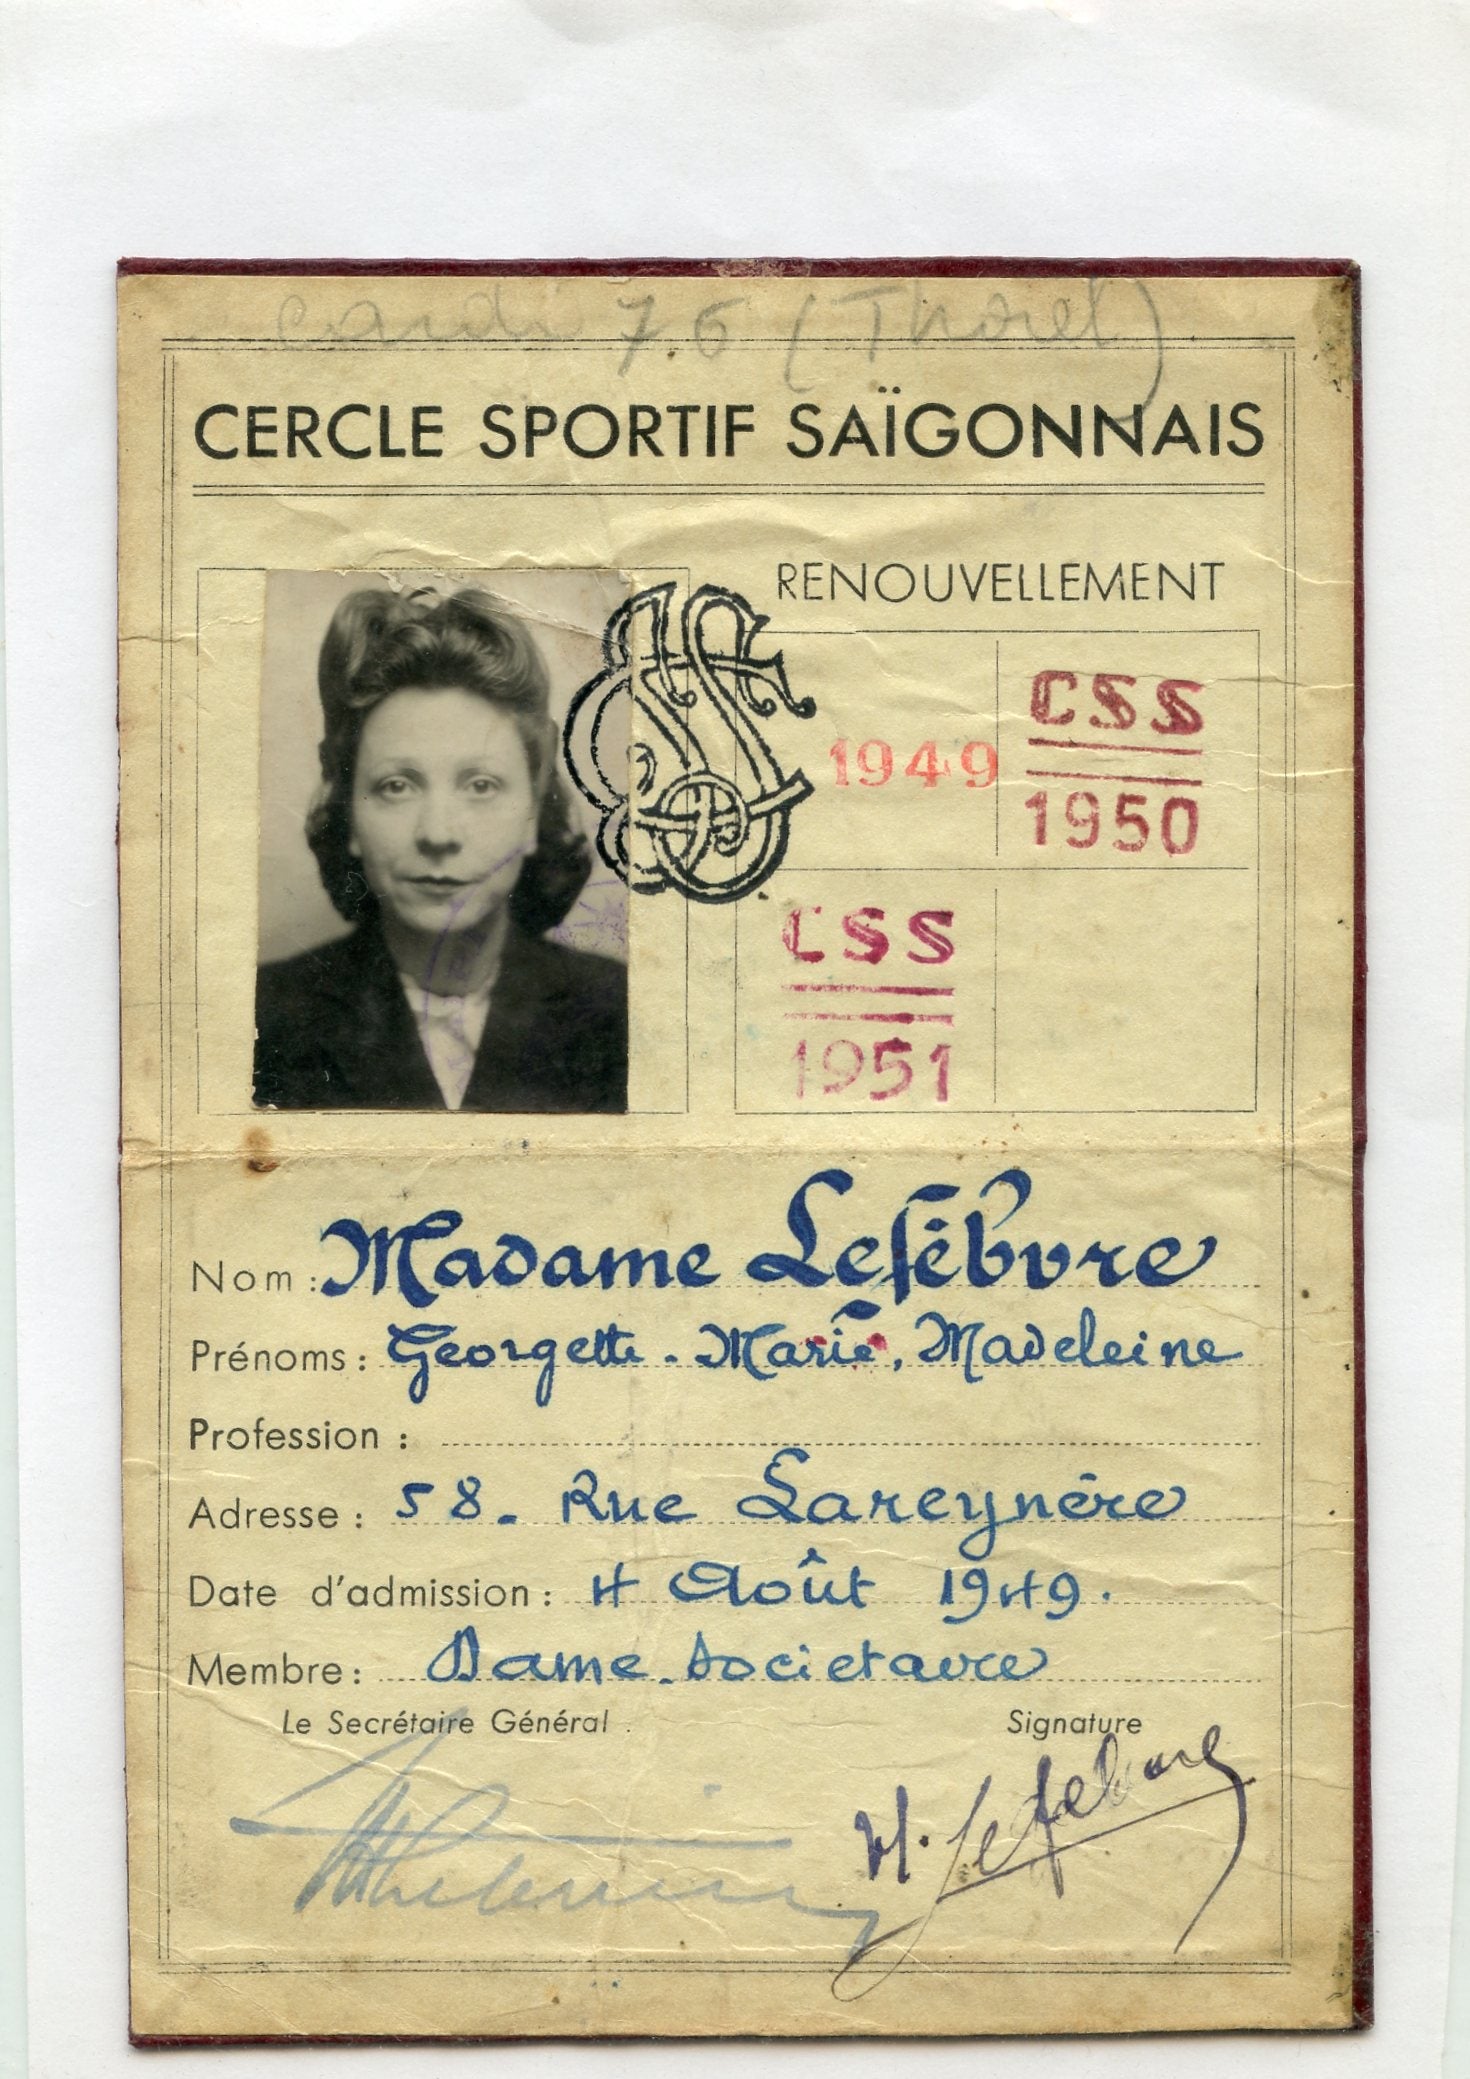 76 (Thorel)
CERCLE SPORTIF SAÏGONNAIS
RENOUVELLEMENT
1949
CSS
1950
CSS
1951
Nom : Madame Lefèbvre
Prénoms : Georgette - Marie, Madeleine
Profession :
Adresse : 58. Rue Lareynère
Date d'admission : 4 Août 1949.
Membre : Dame Sociétaire
Le Secrétaire Général
Signature
Lefebvre